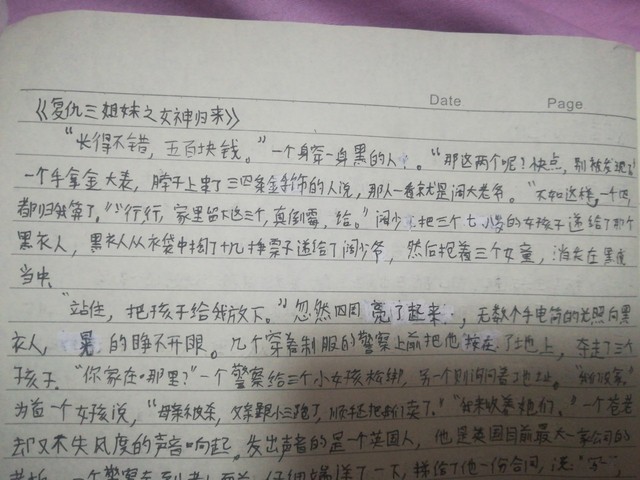 Date Page
《复仇三姐妹之女神归来》
“长得不错，五百块钱。”一个身穿一身黑的人。“那这两个呢？快点，别被发现了
一个手拿金大表，脖子上串了三四条金手饰的人说，那人一看就是阔大老爷。“不如这样，一个四
都归我算了。”“行行，家里留下这三个，真倒霉，给。”阔少把三个七八岁的女孩子递给了那个
黑衣人，黑衣人从衣袋中掏了十几捧票子递给了阔少爷，然后抱着三个女童，消失在黑夜
当中。
“站住，把孩子给我放下。”忽然四周亮了起来，无数个手电筒的光照向黑
衣人，晃的睁不开眼。几个穿着制服的警察上前把他按在了地上，夺走了三个
孩子。“你家在那里？”一个警察给三个小女孩松绑，另一个则询问着地址。
当首一个女孩说，“母亲被杀，父亲跟小三跑了，顺手还把我们卖了。”“我来收养她们。”一个苍老
却又不失风度的声音响起，发出声音的是一个英国人，他是英国目前最大一家公司的
老板，一个警察